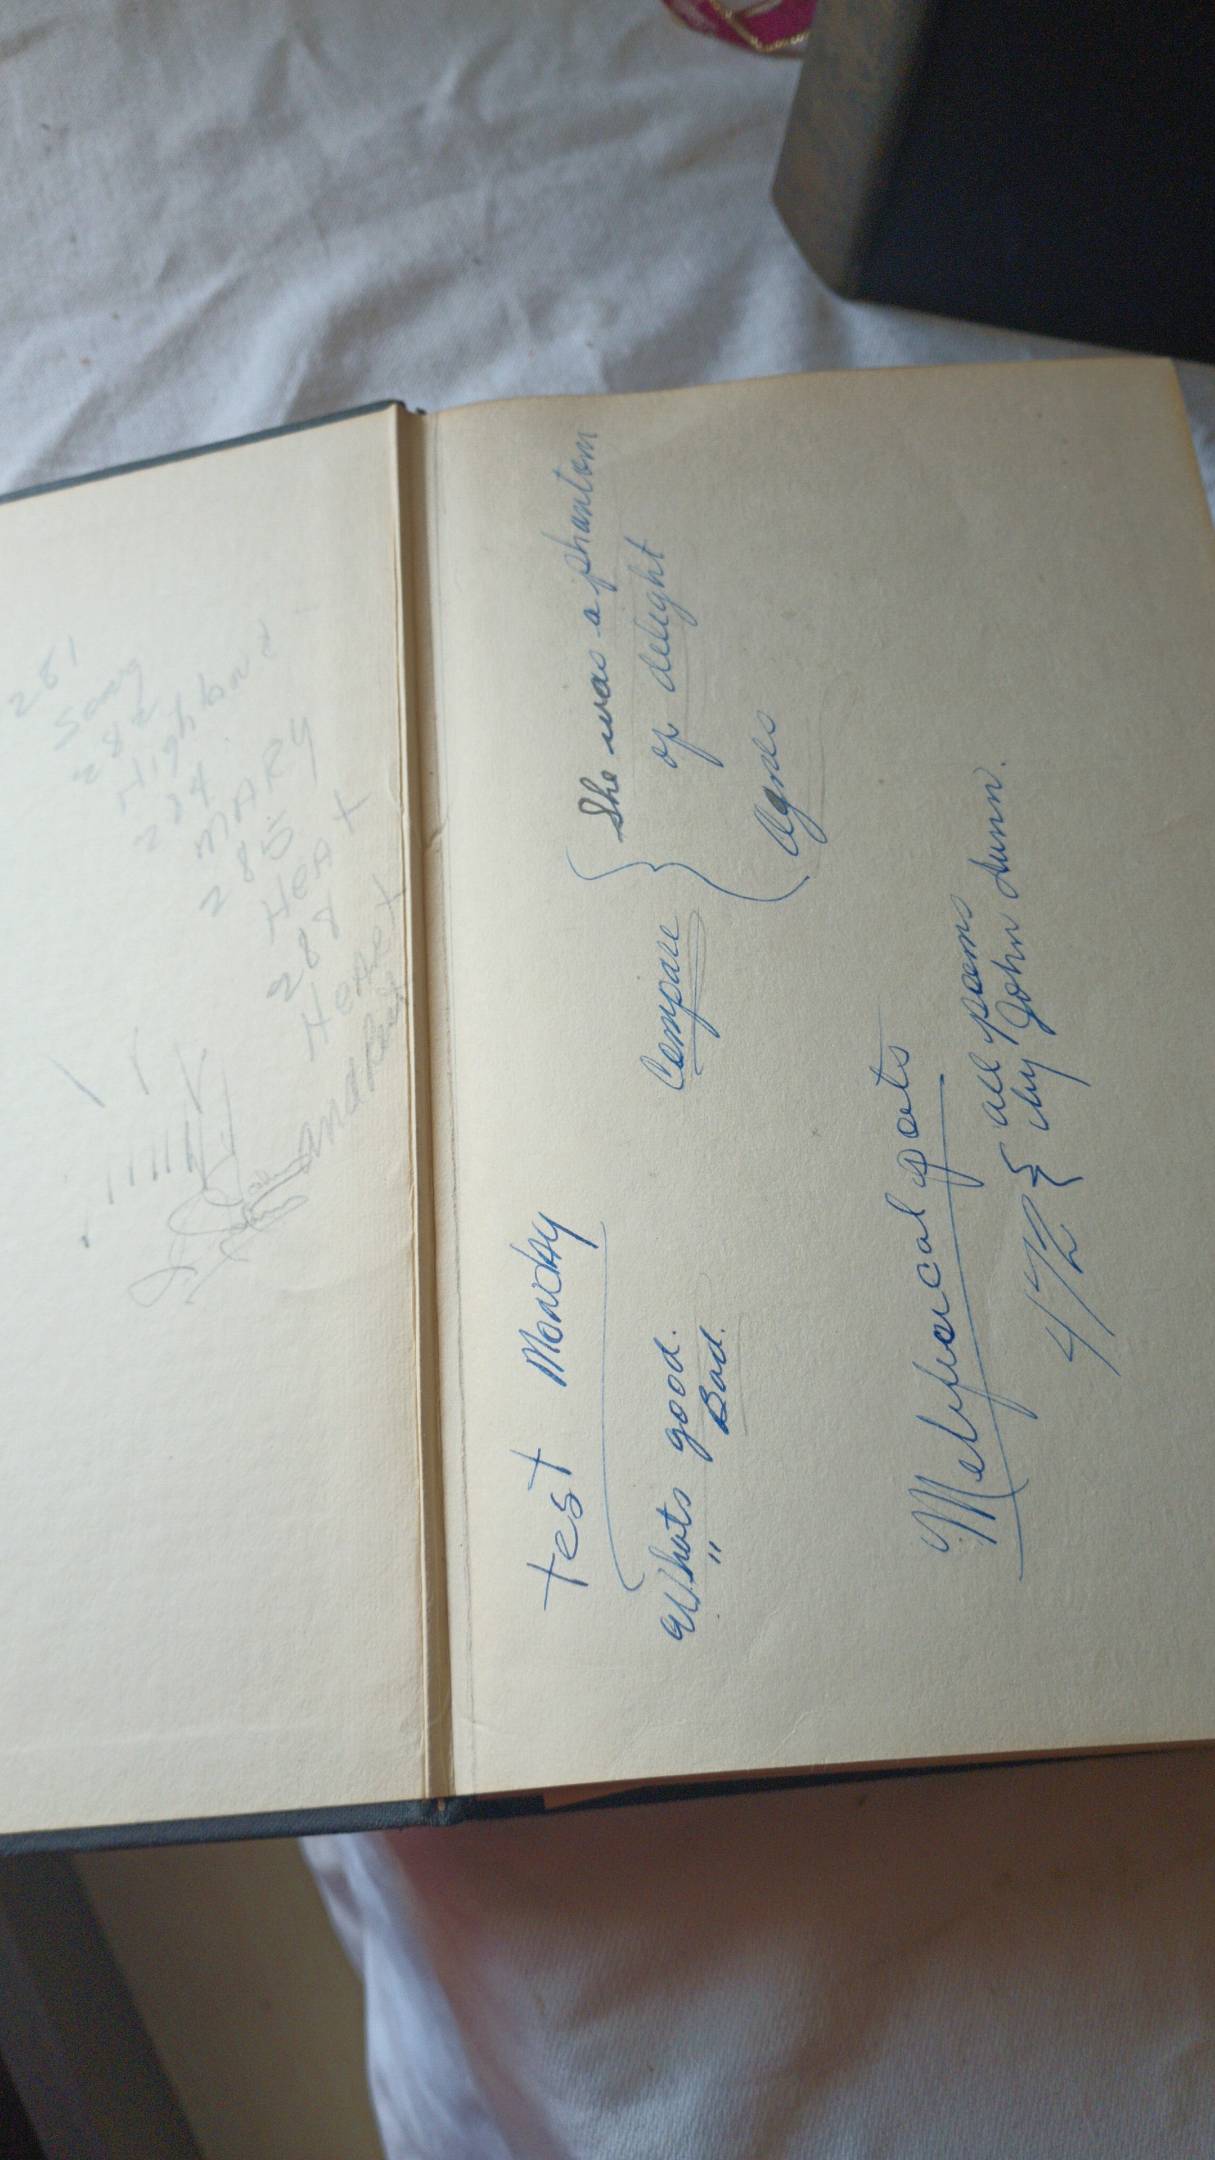 281
Song
282
Highland
284
MARY
285
HEA +
288
HEART
and
test Monday
Whats good.
" Bad.
Compare { She was a phantom
of delight
Agnes
Metphorcal poets
472 { all poems
by John dunn.